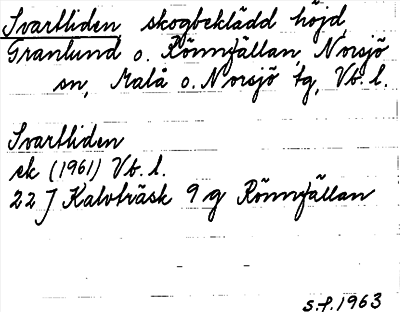 Svartliden, skogbeklädd höjd,
Granlund o. Rönnfällan, Norsjö
sn, Malå o. Norsjö tg, Vb. l.
Svartliden
ek (1961) Vb. l.
22 J Kalvträsk 9 g Rönnfällan
s.f. 1963